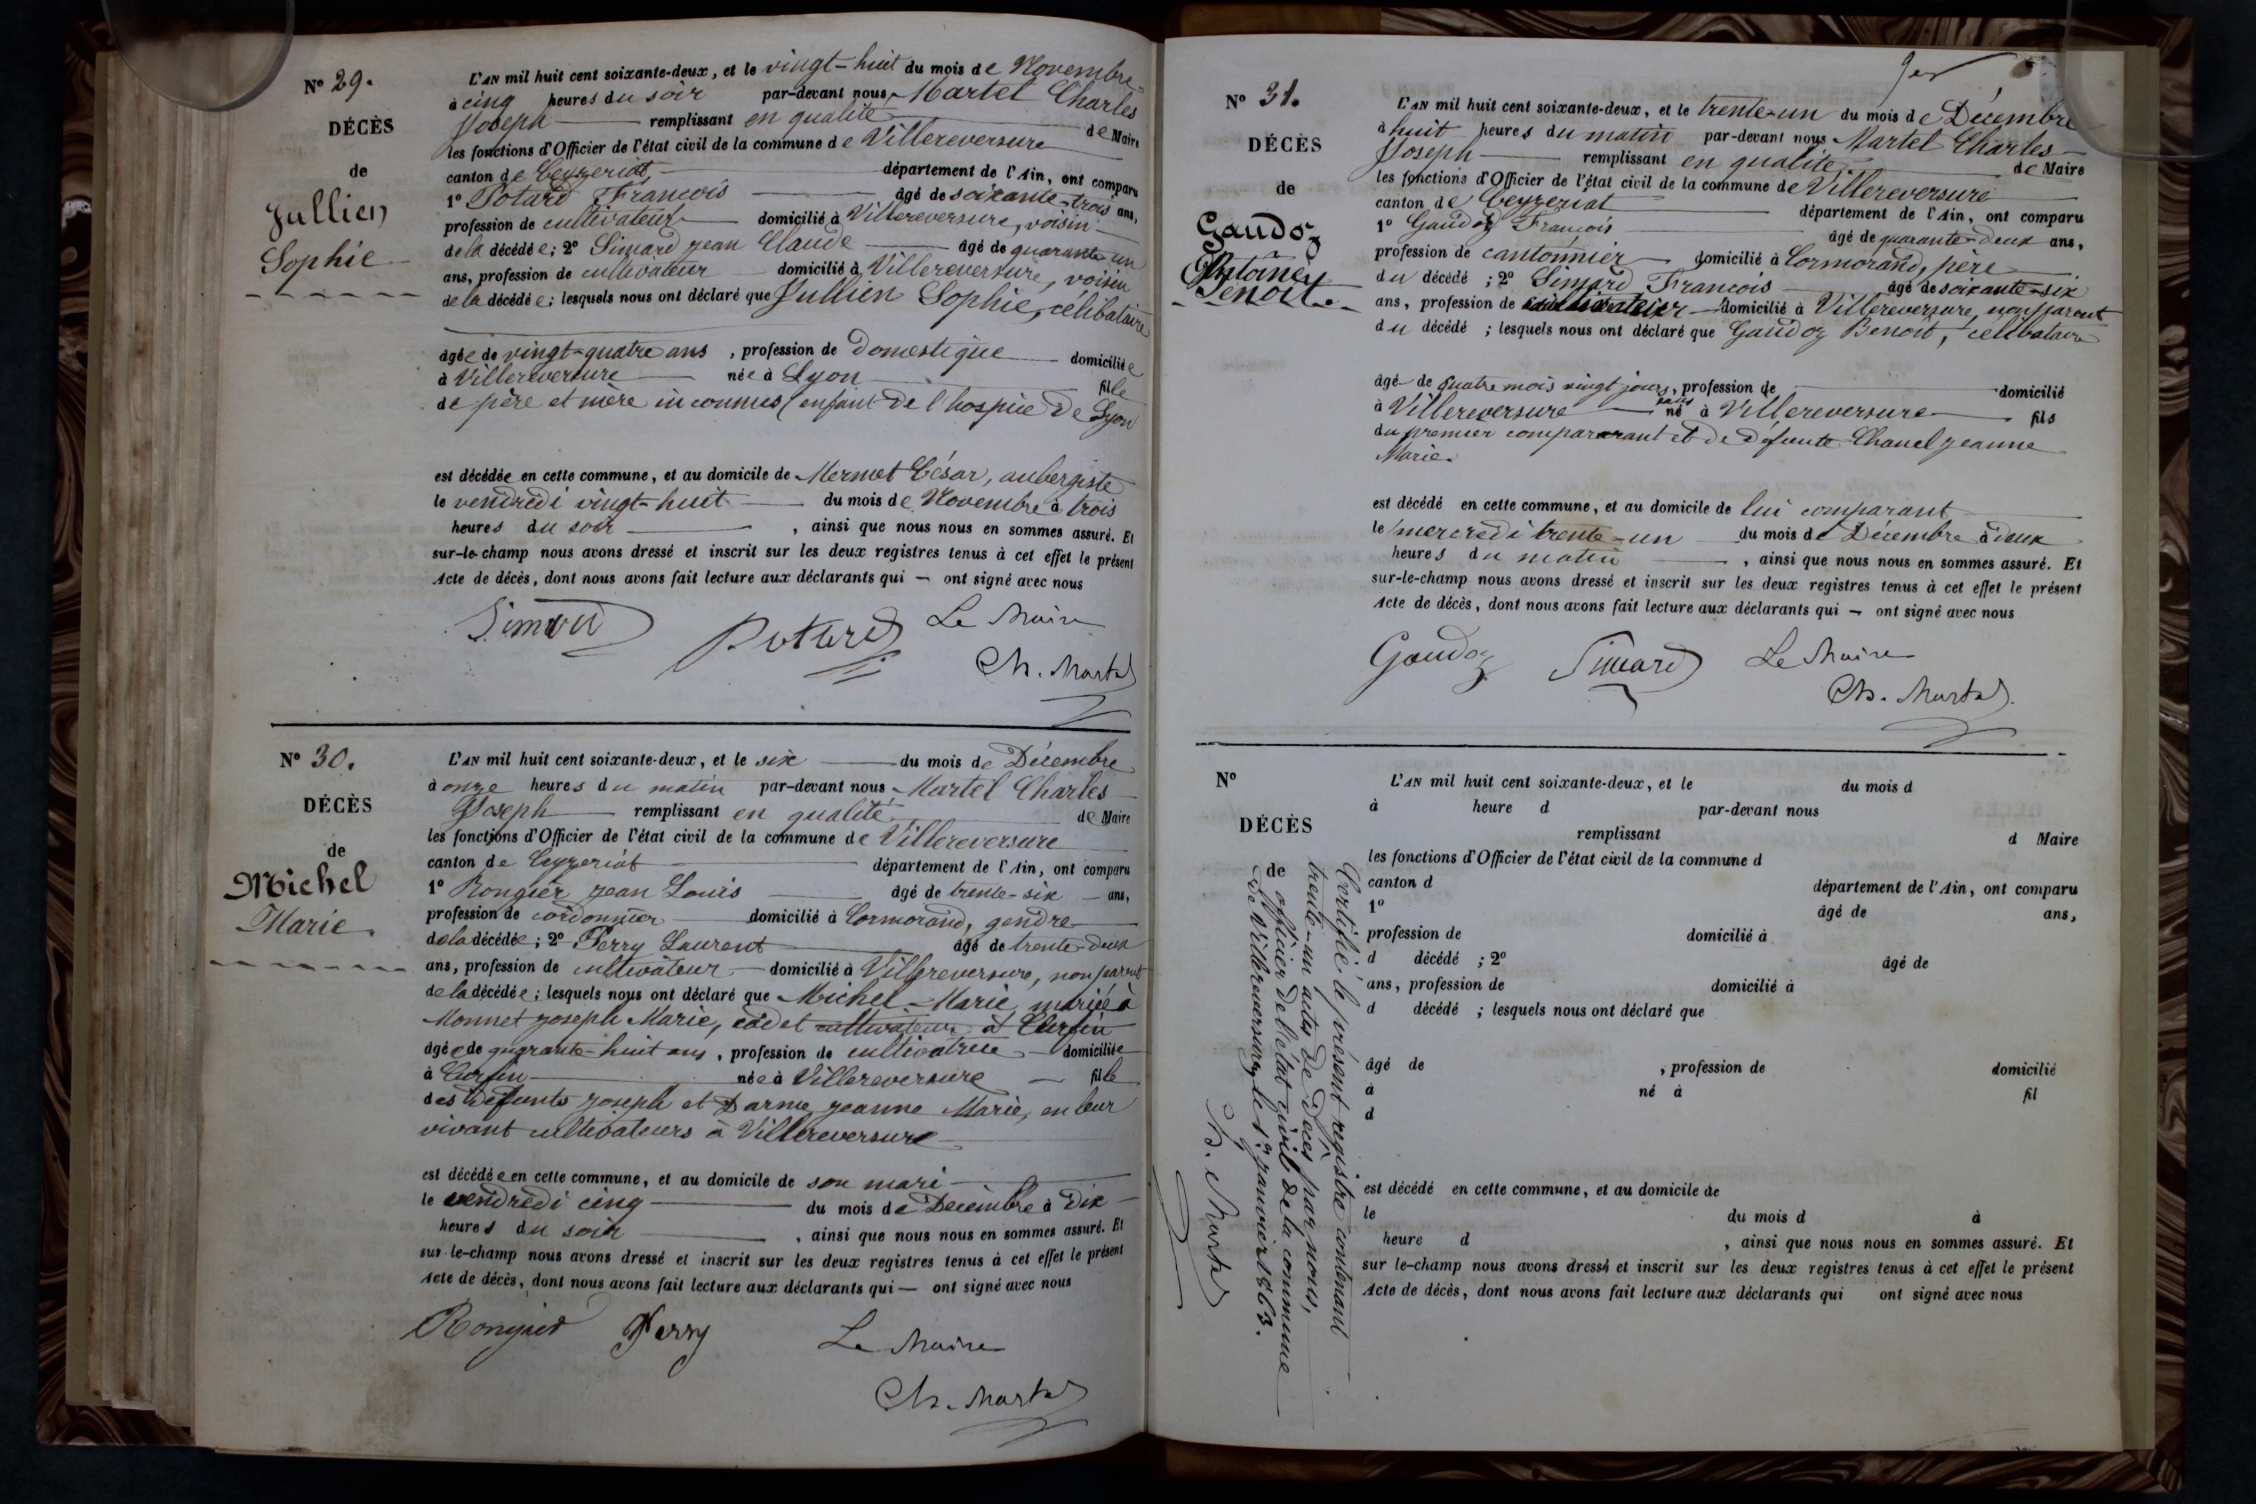 N° 29.
DÉCÈS
de
Jullien
Sophie
L'AN mil huit cent soixante-deux, et le vingt-huit du mois de Novembre
à cinq heures du soir par-devant nous Martel Charles
Joseph remplissant en qualité de Maire
les fonctions d'Officier de l'état civil de la commune de Villereversure
canton de Ceyzeriat, département de l'Ain, ont comparu
1° Potard François âgé de soixante-trois ans,
profession de cultivateur domicilié à Villereversure, voisin
de la décédée; 2° Simard jean Claude âgé de quarante-un
ans, profession de cultivateur domicilié à Villereversure, voisin
de la décédée; lesquels nous ont déclaré que Jullien Sophie, célibataire
âgée de vingt-quatre ans, profession de Domestique domiciliée
à Villereversure née à Lyon fille
de père et mère inconnus (enfant de l'hospice de Lyon
est décédée en cette commune, et au domicile de Mermet César, aubergiste
le vendredi vingt-huit du mois de Novembre à trois
heures du soir, ainsi que nous nous en sommes assuré. Et
sur-le-champ nous avons dressé et inscrit sur les deux registres tenus à cet effet le présent
Acte de décès, dont nous avons fait lecture aux déclarants qui — ont signé avec nous
Simard Potard Le Maire
Ch. Martel
N° 30.
DÉCÈS
de
Michel
Marie.
L'AN mil huit cent soixante-deux, et le six du mois de Décembre
à onze heures du matin par-devant nous Martel Charles
Joseph remplissant en qualité de Maire
les fonctions d'Officier de l'état civil de la commune de Villereversure
canton de Ceyzeriat département de l'Ain, ont comparu
1° Rongier jean Louis âgé de trente-six ans,
profession de cordonnier domicilié à Cormorand, gendre
de la décédée; 2° Perry Laurent âgé de trente-deux
ans, profession de cultivateur domicilié à Villereversure, non parent
de la décédée; lesquels nous ont déclaré que Michel Marie, mariée à
Monnet joseph Marie, cadet cultivateur à Curfin
âgée de quarante-huit ans, profession de cultivatrice domiciliée
à Curfin née à Villereversure fille
des défunts joseph et Darme jeanne Marie, en leur
vivant cultivateurs à Villereversure
est décédée en cette commune, et au domicile de son mari
le vendredi cinq du mois de Décembre à dix
heures du soir, ainsi que nous nous en sommes assuré. Et
sur-le-champ nous avons dressé et inscrit sur les deux registres tenus à cet effet le présent
Acte de décès, dont nous avons fait lecture aux déclarants qui — ont signé avec nous
Rongier Perry Le Maire
Ch. Martel
N° 31.
DÉCÈS
de
Gaudoz
Antoine
Benoit.
L'AN mil huit cent soixante-deux, et le trente-un du mois de Décembre
à huit heures du matin par-devant nous Martel Charles
Joseph remplissant en qualité de Maire
les fonctions d'Officier de l'état civil de la commune de Villereversure
canton de Ceyzeriat département de l'Ain, ont comparu
1° Gaudoz François âgé de quarante-deux ans,
profession de cantonnier domicilié à Cormorand, père
du décédé; 2° Simard François âgé de soixante-six
ans, profession de cultivateur domicilié à Villereversure, non parent
du décédé; lesquels nous ont déclaré que Gaudoz Benoit, célibataire
âgé de quatre mois vingt jours, profession de domicilié
à Villereversure né à Villereversure fils
du premier comparant et de défunte Chanel jeanne
Marie.
est décédé en cette commune, et au domicile de lui comparant
le mercredi trente-un du mois de Décembre à deux
heures du matin, ainsi que nous nous en sommes assuré. Et
sur-le-champ nous avons dressé et inscrit sur les deux registres tenus à cet effet le présent
Acte de décès, dont nous avons fait lecture aux déclarants qui — ont signé avec nous
Gaudoz Simard Le Maire
Ch. Martel
N°
DÉCÈS
de
L'AN mil huit cent soixante-deux, et le du mois d
à heure d par-devant nous
remplissant d Maire
les fonctions d'Officier de l'état civil de la commune d
canton d département de l'Ain, ont comparu
1° âgé de ans,
profession de domicilié à
d décédé ; 2° âgé de
ans, profession de domicilié à
d décédé ; lesquels nous ont déclaré que
âgé de , profession de domicilié
à né à fil
d
est décédé en cette commune, et au domicile de
le du mois d à
heure d , ainsi que nous nous en sommes assuré. Et
sur le-champ nous avons dressé et inscrit sur les deux registres tenus à cet effet le présent
Acte de décès, dont nous avons fait lecture aux déclarants qui ont signé avec nous
Certifié le présent registre contenant
trente-un actes de Décès par nous,
officier de l'état civil de la commune
de Villereversure, le 1er janvier 1863.
Ch. Martel